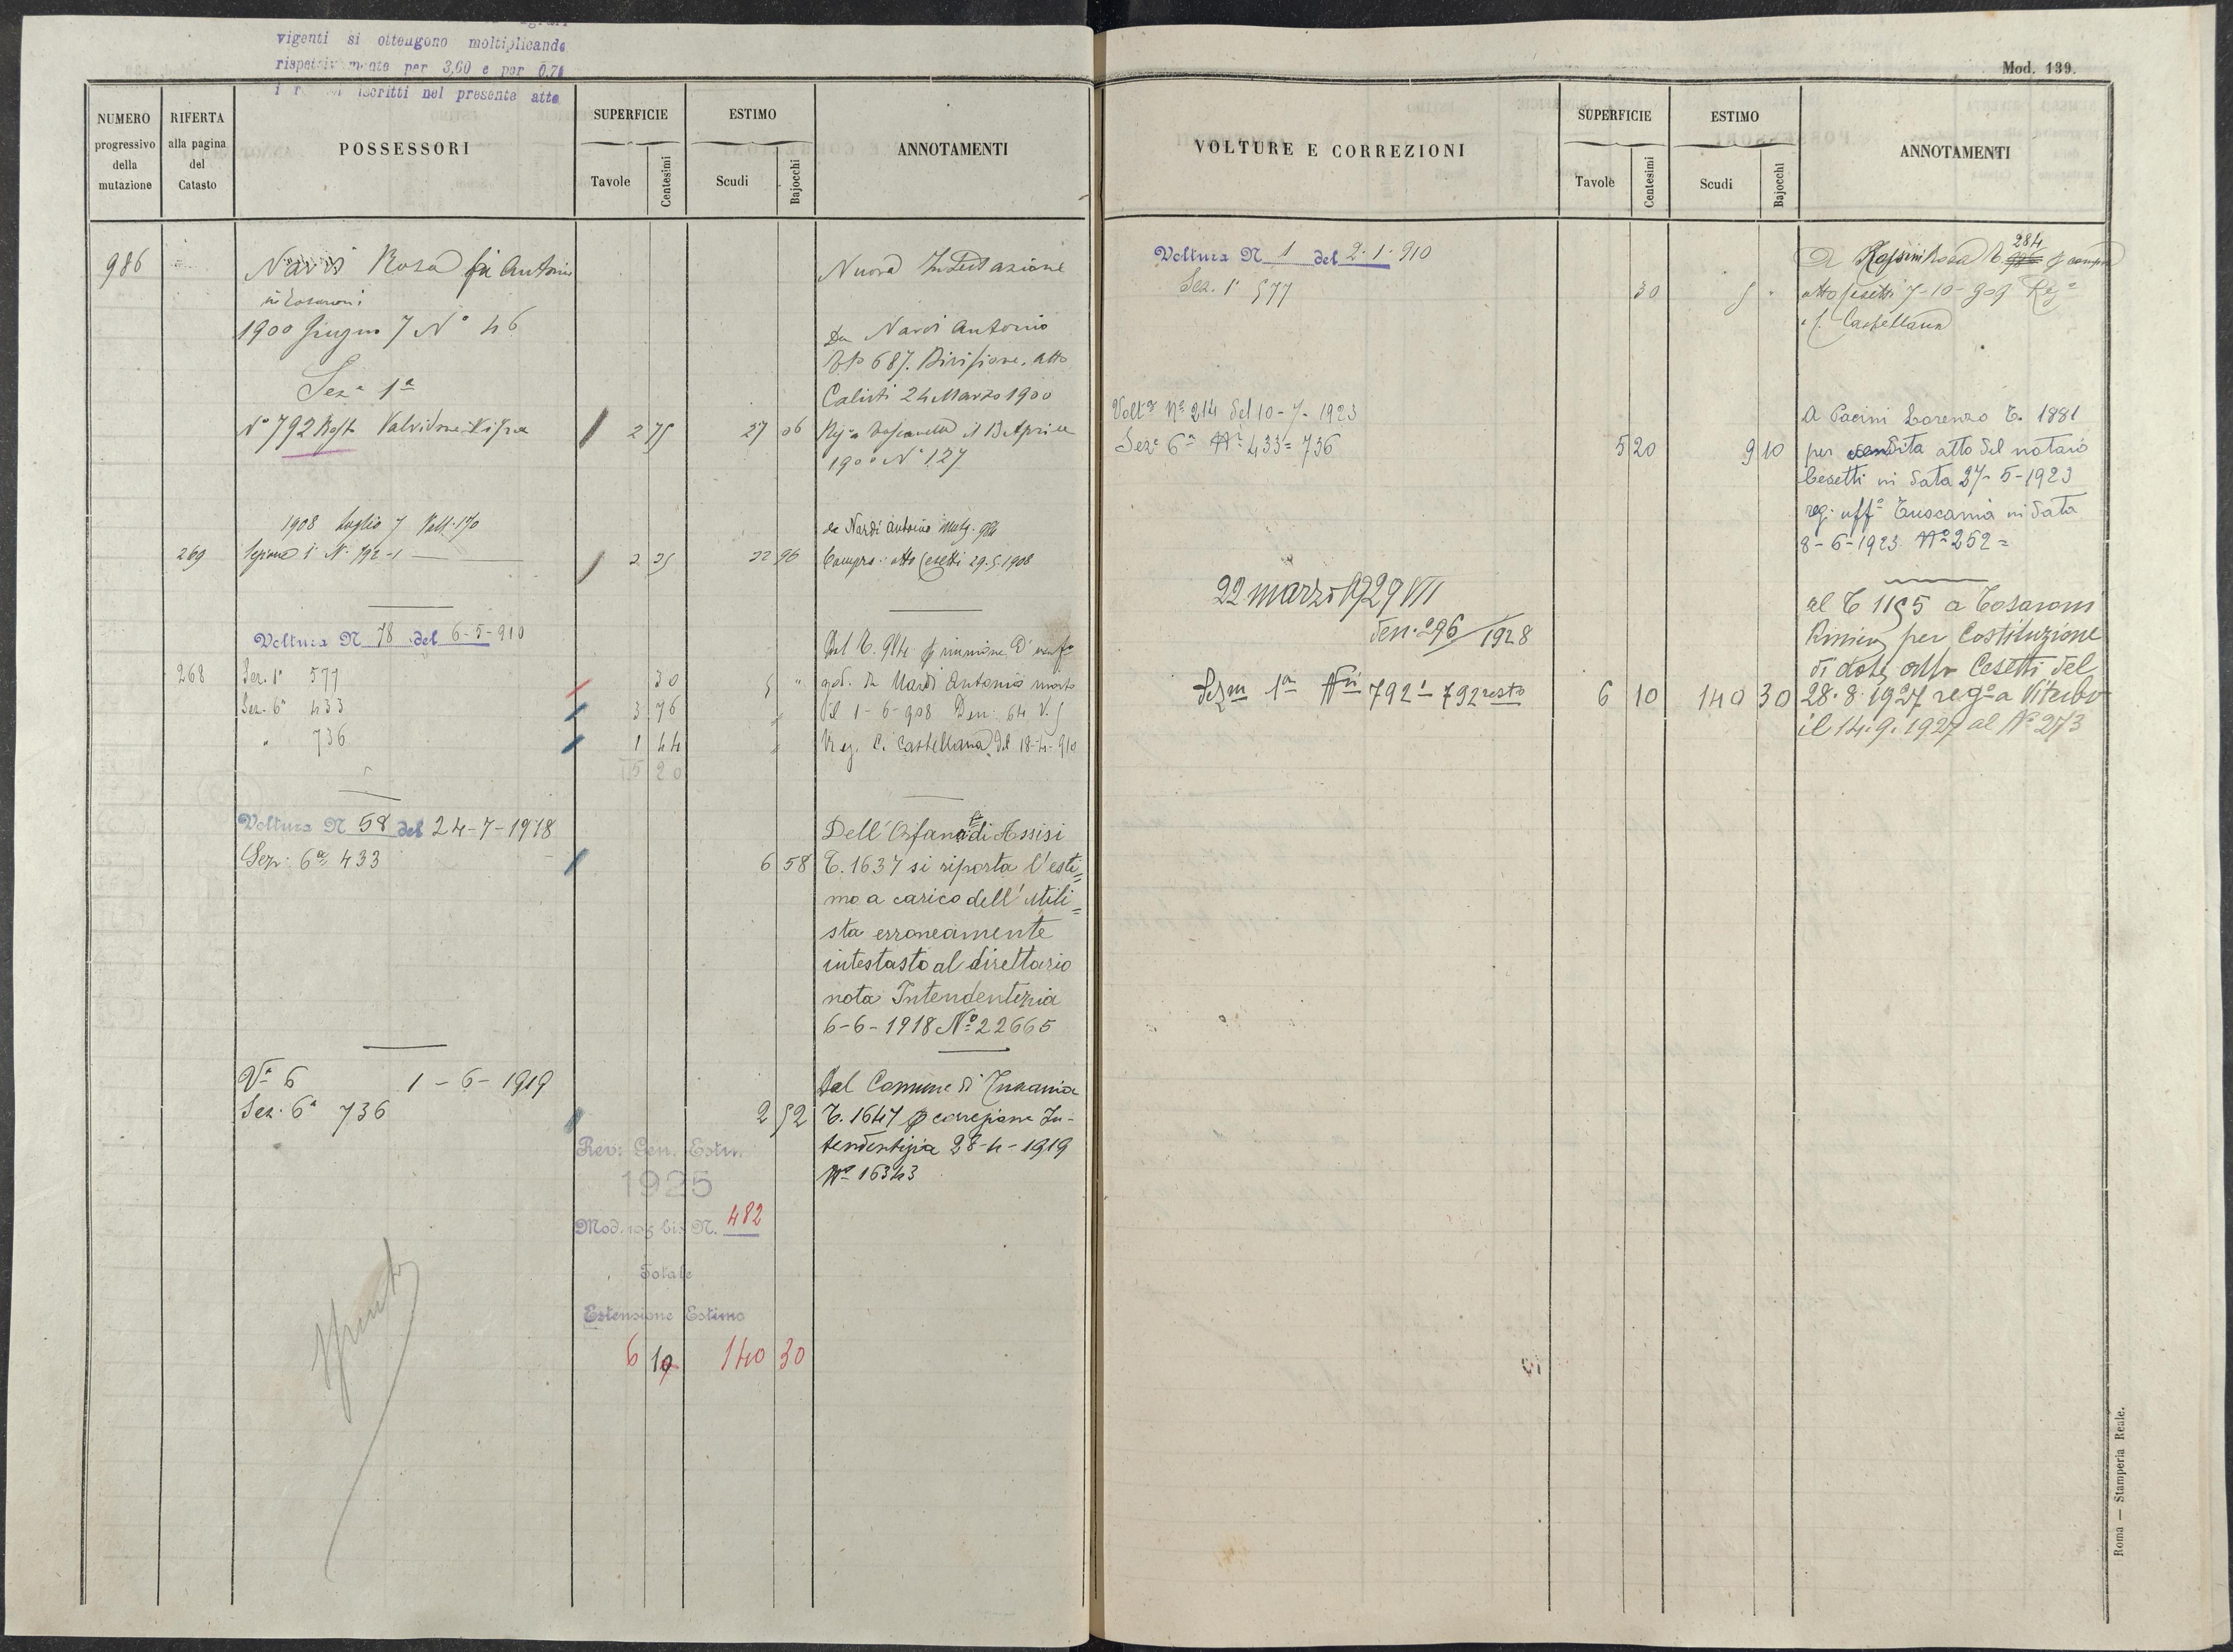 vigenti si ottengono moltiplicando
rispettivamente per 3,60 e per 0,71
iscritti nel presente atto
NUMERO progressivo della mutazione
RIFERTA alla pagina del Catasto
POSSESSORI
SUPERFICIE
Tavole
Centesimi
ESTIMO
Scudi
Bajocchi
ANNOTAMENTI
986
Nardi Rosa fu Antonio
in Cosaroni
1900 Giugno 7 Nº 46
Sezª 1ª
Nº 792 Resto Valvidone
2 75
27 06
Nuova Intestazione
Da Nardi Antonio
687. Divisione, atto
Calisti 24 Marzo 1900
Regª Toscanella il 13 Aprile
1900 Nº 127
1908 luglio 7 Volt. 170
269
Sezione 1ª Nº 792-1
2 35
22 96
da Nardi Antonio
Compra: atto Cesetti 29.5.1908
Voltura N 78 del 6-5-910
268
Sez. 1ª 577
30
5 "
Sez. 6ª 433
3 76
" 736
1 44
5 20
Dal T. 984 p riunione D' usuf.
god. da Nardi Antonio morto
il 1-6-908 Den: 64 V. 5
Reg. C. Castellana del 18-4-910
Voltura N 58 del 24-7-1918
Sez: 6ª 433
6 58
Dell' Orfanº di Assisi
T. 1637 si riporta l'esti=
mo a carico dell' Utili=
sta erroneamente
intestasto al direttario
nota Intendentizia
6-6-1918 Nº 22665
Vª 6 1-6-1919
Sez. 6ª 736
2 52
Dal Comune di Tuscania
T. 1647 p correzione In-
tendentizia 28-4-1919
Nº 16343
Rev: Gen. Estim.
1925
Mod. 109 bis N. 482
Totale
Estensione Estimo
6 10 140 30
Spento
Mod. 139.
VOLTURE E CORREZIONI
SUPERFICIE
Tavole
Centesimi
ESTIMO
Scudi
Bajocchi
ANNOTAMENTI
Voltura N 1 del 2.1.910
Sez. 1ª 577
30
5 "
284
A Rossini Rosa T p compra
atto Cesetti 7-10-909 Regª
C. Castellana
Voltª Nº 214 del 10-7-1923
Sezº 6ª Nº 433 = 736
5 20
9 10
A Pacini Lorenzo T. 1881
per vendita atto del notaio
Cesetti in data 27-5-1923
reg. uffº Tuscania in data
8-6-1923 Nº 252=
22 marzo 1929 VII
Den.º 296/1928
Sezm 1ª Nri 792¹ - 792 resto
6 10
140 30
al T 1155 a Cosaroni
per Costituzione
di dote atto Cesetti del
28.8.1927 regº a Viterbo
il 14.9.1927 al Nº 273
Roma — Stamperia Reale.